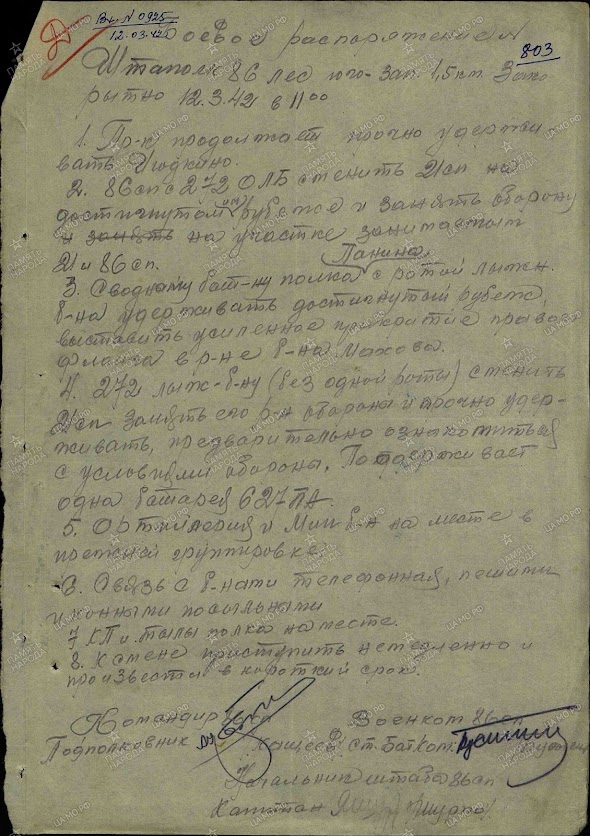 Вх. N 0925
12.03.42
Боевое распоряжение N
803
Штаполк 86 лес юго-зап. 1,5 км. Зако
рытно 12.3.42 в 11 00
1. Пр-к продолжает прочно удержи
вать Дюдкино.
2. 86 сп с 272 ОЛБ сменить 21 сп на
достигнутом рубеже и занять оборону
и занять на участке занимаемым
21 и 86 сп.
Панина
3. Сводному бат-ну полка с ротой лыжн.
б-на удерживать достигнутый рубеж,
выставить усиленное прикрытие право
фланга в р-не б-на Махова.
4. 272 лыж-б-ну (без одной роты) сменить
21 сп занять его р-н обороны и прочно удер-
живать, предварительно ознакомиться
с условиями обороны. Поддерживает
одна батарея 627 ПА.
5. Артиллерия и Мин б-н на месте в
прежней группировке.
6. Связь с б-нами телефонная, пешими
и конными посыльными
7 КП и тылы полка на месте.
8. К смене приступить немедленно и
произвести в короткий срок.
Командир 86 сп Военком 86 сп
Подполковник Ст. Бат Ком.
Начальник штаба 86 сп
Капитан